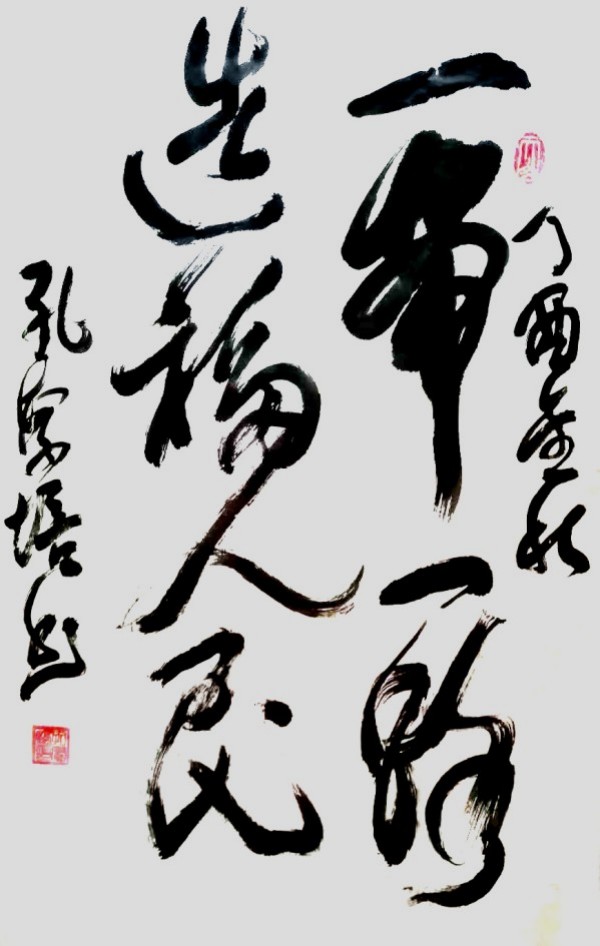 丁酉金秋
一带一路
造福人民
孔宪培书